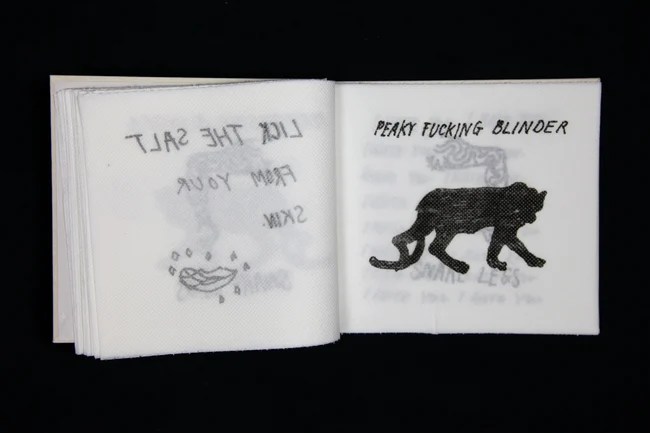 LICK THE SALT
FROM YOUR
SKIN.
PEAKY FUCKING BLINDER
SNAKE LEGS